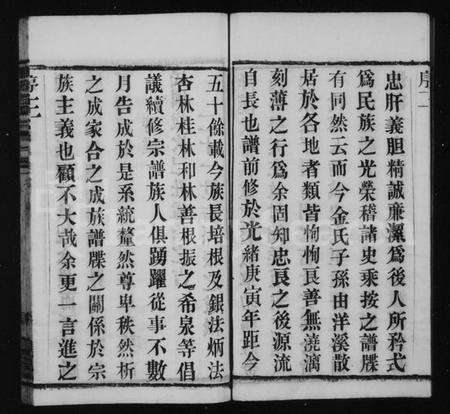 序二
忠肝義胆精誠廉潔為後人所矜式
為民族之光榮稽諸史乘按之譜牒
有同然云而今金氏子孫由洋溪散
居於各地者類皆恂恂良善無澆漓
刻薄之行為余固知忠良之後源流
自長也譜前修於光緒庚寅年距今
五十餘載今族長培根及銀法炳法
杏林桂林和林善根振之希泉等倡
議續修宗譜族人俱踴躍從事不數
月告成於是系統釐然尊卑秩然析
之成家合之成族譜牒之關係於宗
族主義也顧不大哉余更一言進之